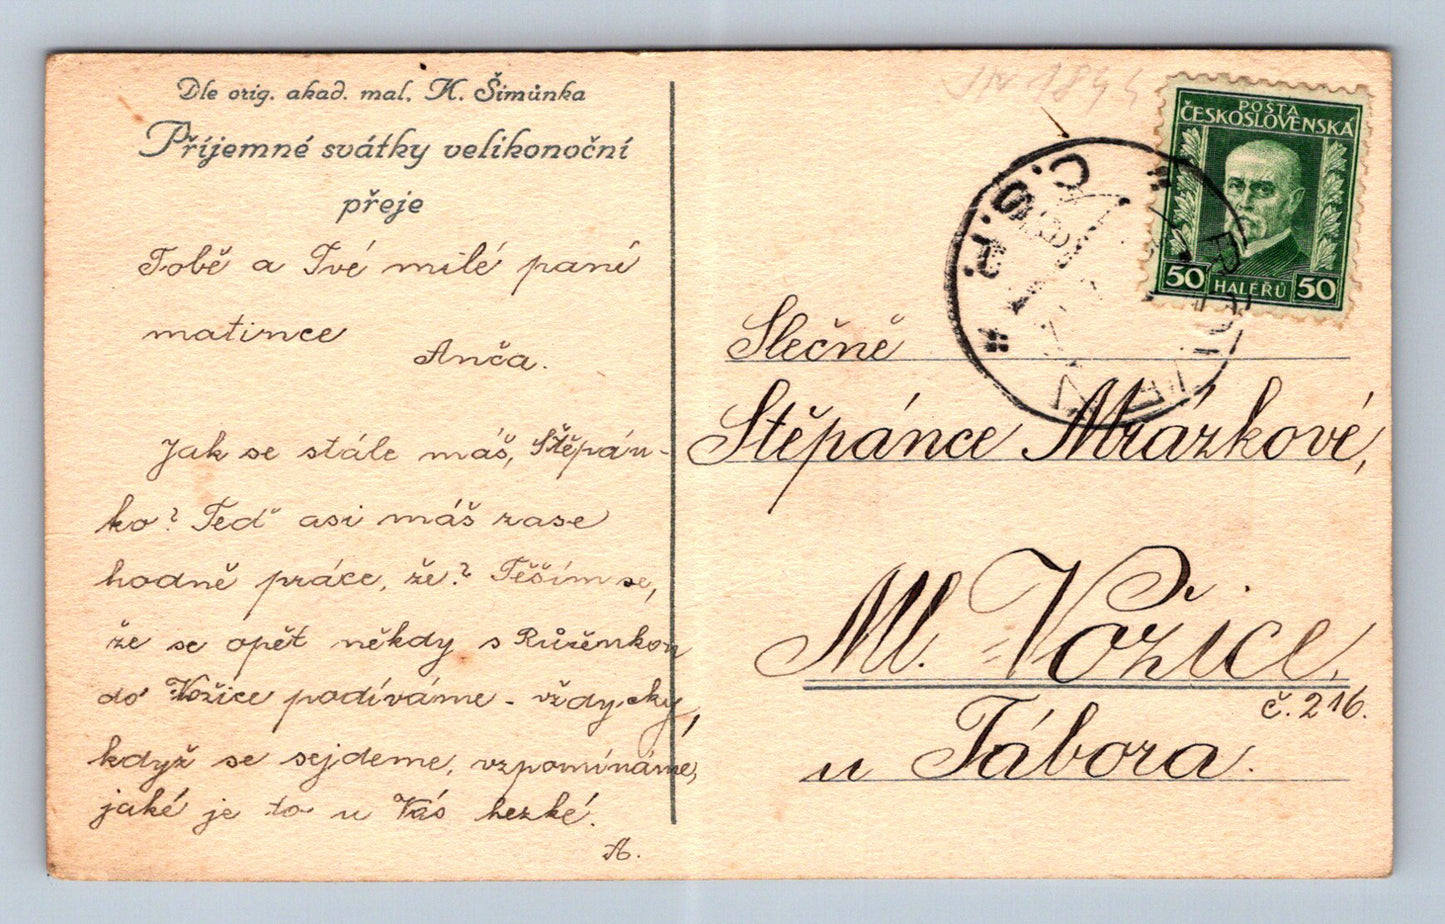 Dle orig. akad. mal. K. Šimůnka
Příjemné svátky velikonoční
přeje
Tobě a Tvé milé paní
matince
Anča.
Jak se stále máš, Štěpán-
ko? Teď asi máš zase
hodně práce, že? Těším se,
že se opět někdy s Růženkou
do Vožice podíváme - vždycky,
když se sejdeme, vzpomínáme,
jaké je to u Vás hezké.
A.
POŠTA
ČESKOSLOVENSKÁ
50 HALÉŘŮ 50
Č.S.R.
Slečně
Štěpánce Mrázkové,
Ml. Vožice
č. 216.
u Tábora.